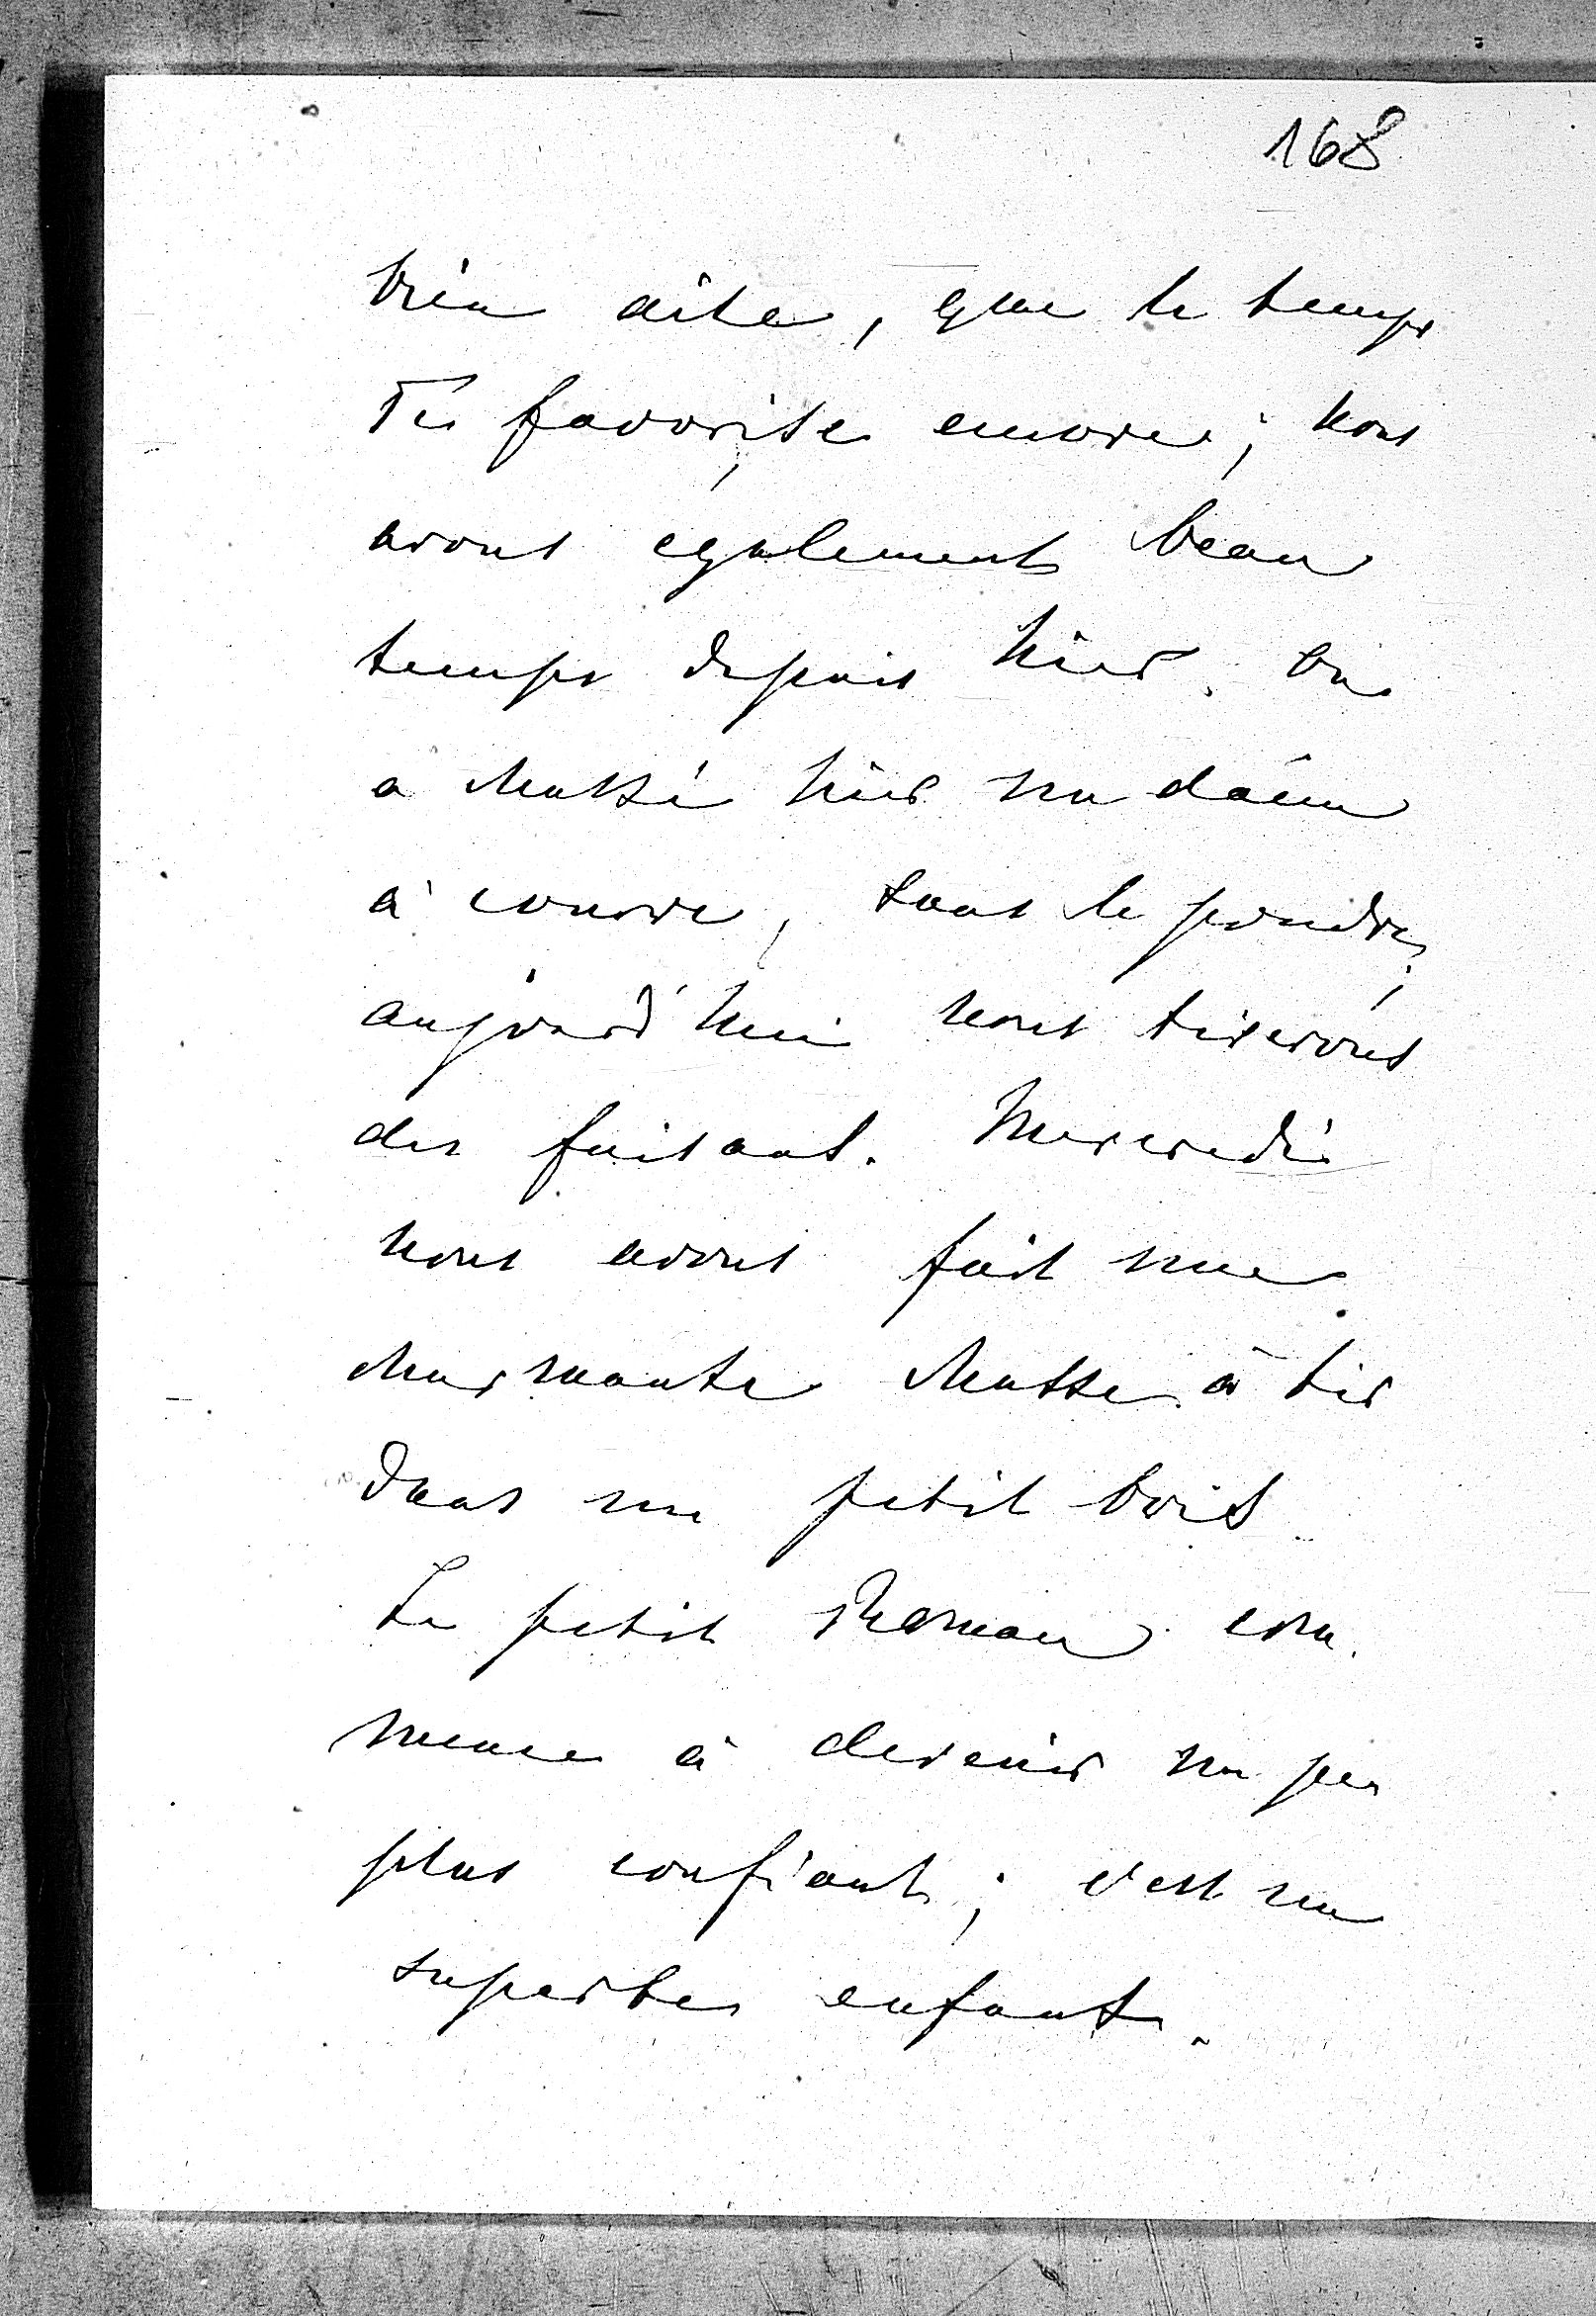 168
bien aise, que le temps
Te favorise encore; nous
avons également beau
temps depuis hier. On
a chassé hier un daim
à courre, sans le prendre;
aujourd'hui nous tirerons
des faisans. Mercredi
nous avons fait une
charmante chasse à tir
dans un petit bois
Le petit Roman com
mence à devenir un peu
plus confiant; c'est un
superbe enfant.